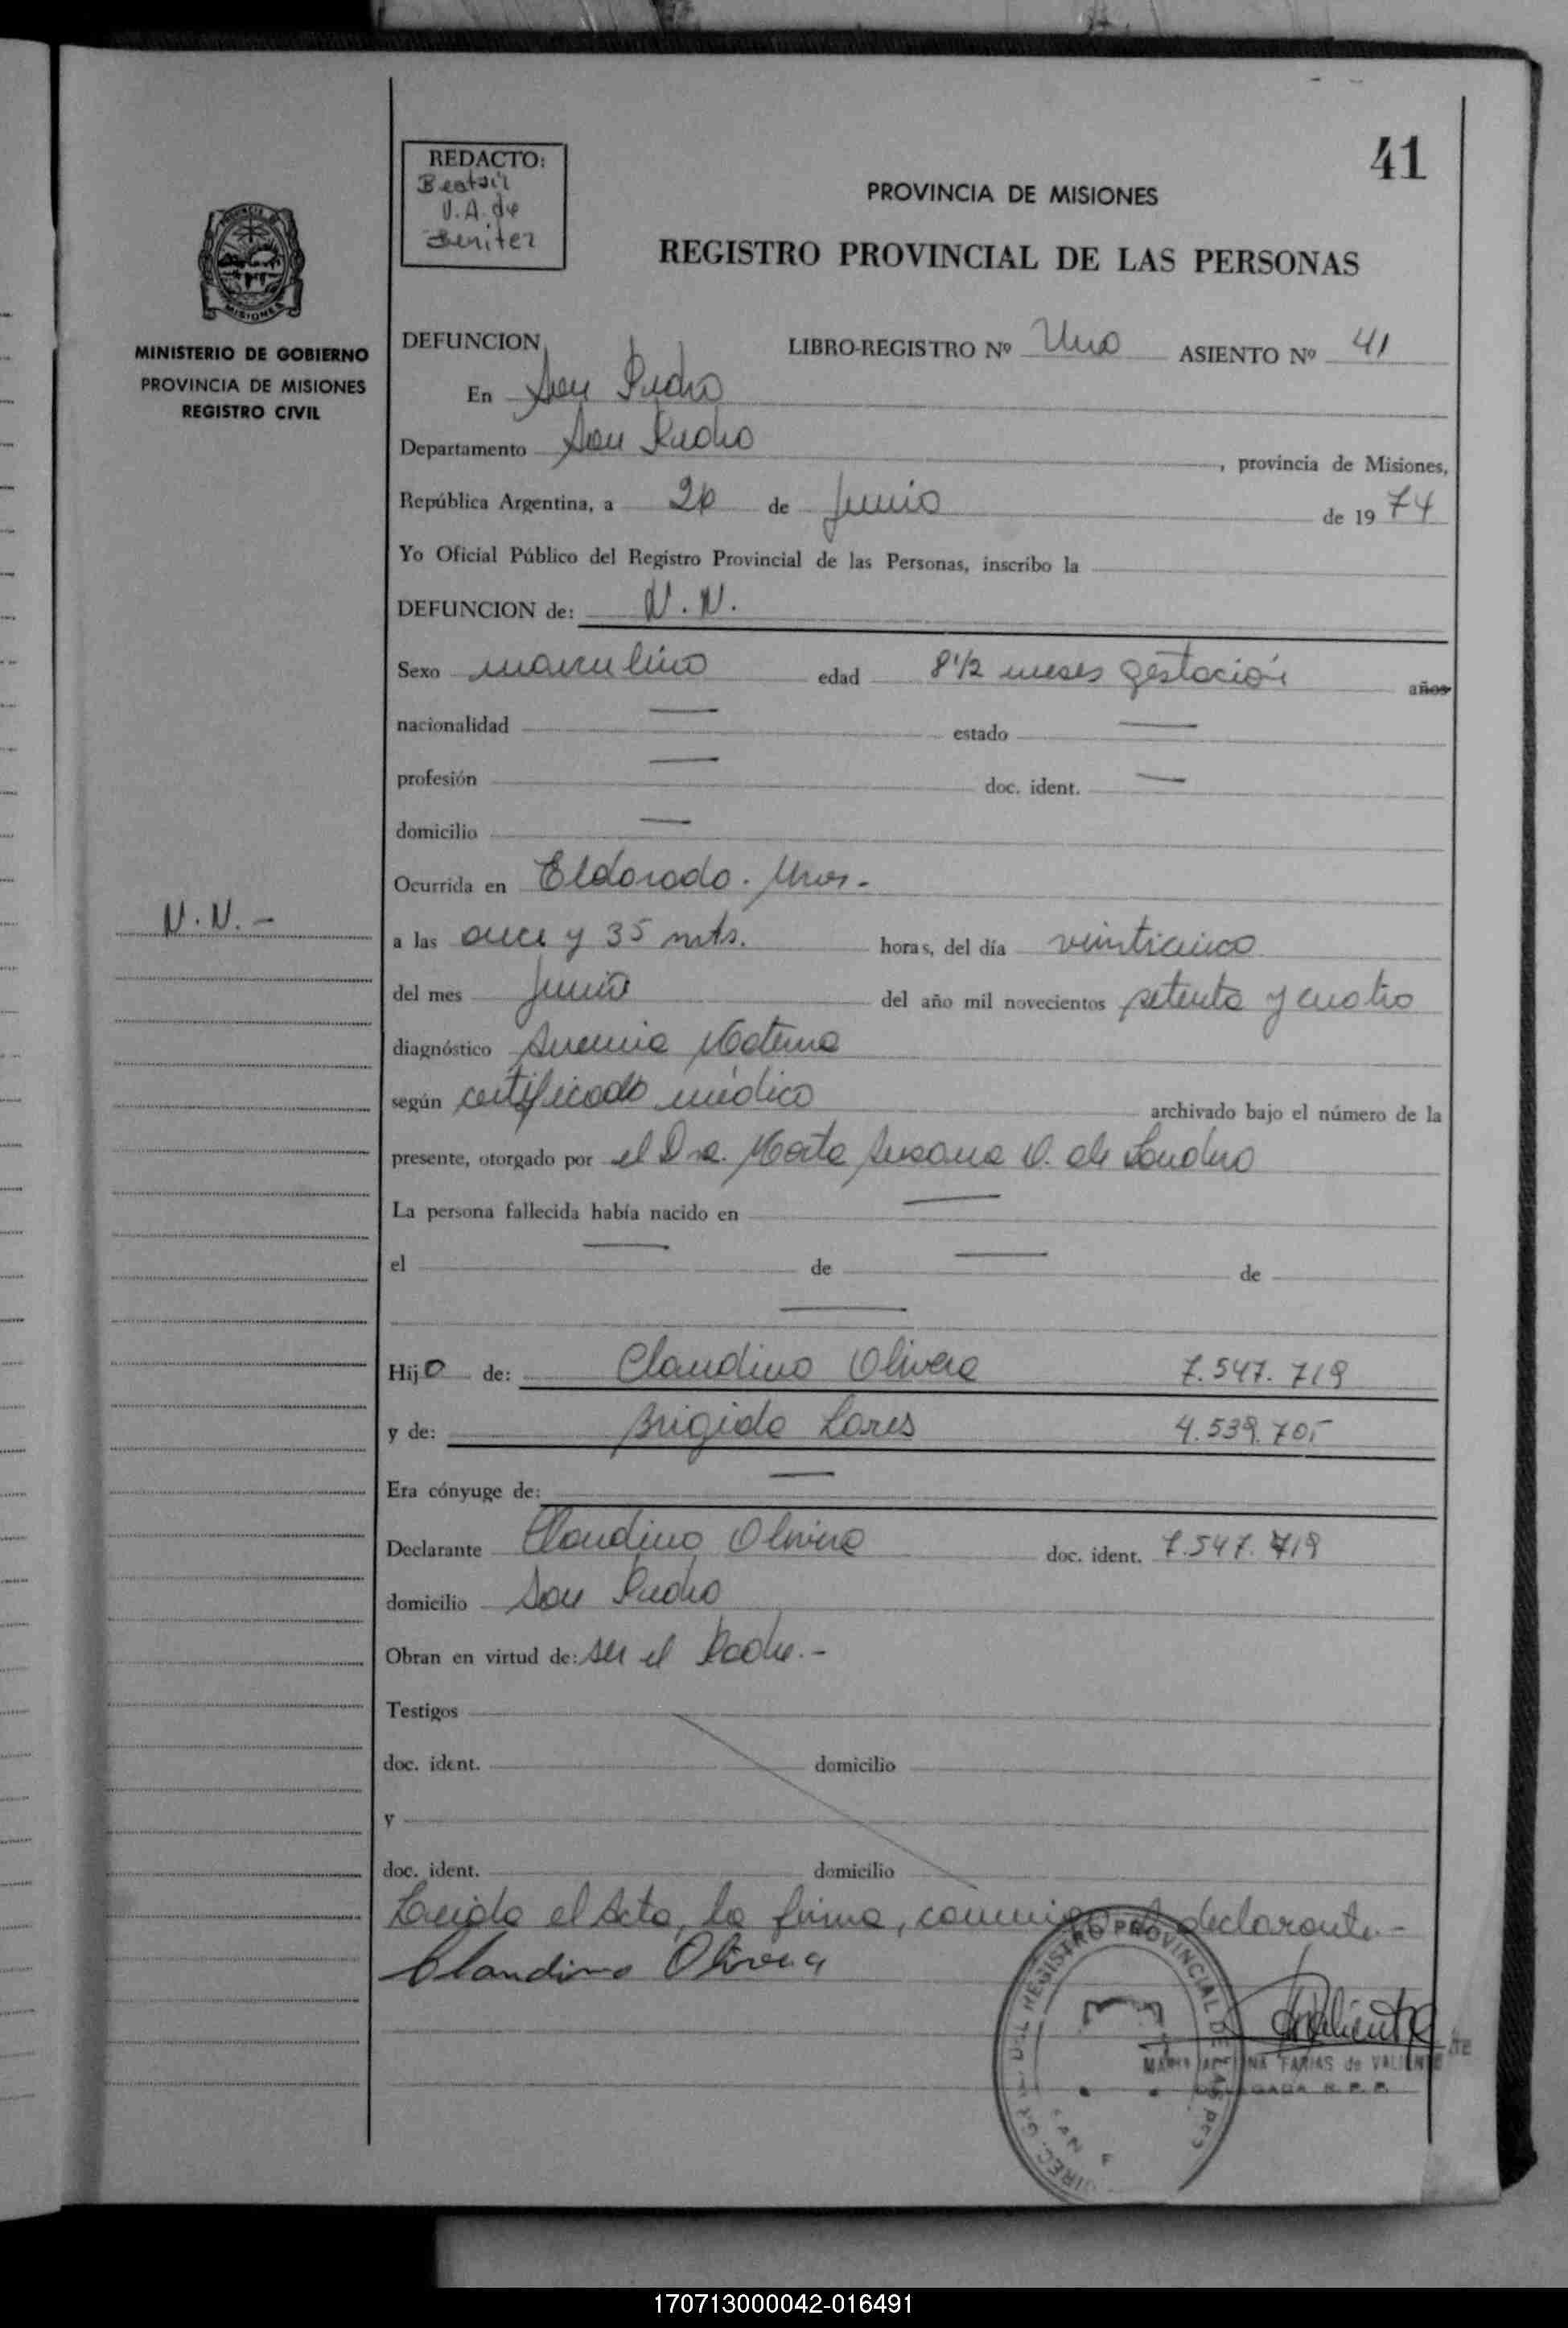 41
REDACTO:
Beatriz
V.A. de
Benitez
PROVINCIA DE MISIONES
REGISTRO PROVINCIAL DE LAS PERSONAS
MISIONES
MINISTERIO DE GOBIERNO
PROVINCIA DE MISIONES
REGISTRO CIVIL
DEFUNCION LIBRO-REGISTRO Nº Uno ASIENTO Nº 41
En San Pedro
Departamento San Pedro , provincia de Misiones,
República Argentina, a 26 de Junio de 1974
Yo Oficial Público del Registro Provincial de las Personas, inscribo la
DEFUNCION de: N.N.
Sexo masculino edad 8 1/2 meses gestación años
nacionalidad — estado —
profesión — doc. ident. —
domicilio —
Ocurrida en Eldorado. Mnes.-
N.N.-
a las once y 35 mts. horas, del día veinticinco
del mes Junio del año mil novecientos setenta y cuatro
diagnóstico Anemia Materna
según certificado médico archivado bajo el número de la
presente, otorgado por el Dra. Marta Susana V. de
La persona fallecida había nacido en —
el — de — de
—
Hijo de: Claudino Olivera 7.547.719
y de: Brigida Lares 4.539.705
Era cónyuge de: —
Declarante Claudino Olivera doc. ident. 7.547.719
domicilio San Pedro
Obran en virtud de: ser el Padre.-
Testigos
doc. ident. domicilio
y
doc. ident. domicilio
Leida el Acta, la firma, conmigo el declarante.-
Claudino Olivera
REGISTRO PROVINCIAL DE LAS
FARIAS de VALIENTE
R. P. P.
170713000042-016491